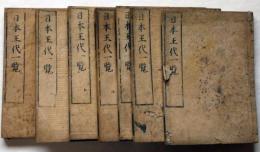 日本王代一覧
日本王代一覧
日本王代一覧
日本王代一覧
日本王代一覧
日本王代一覧
日本王代一覧